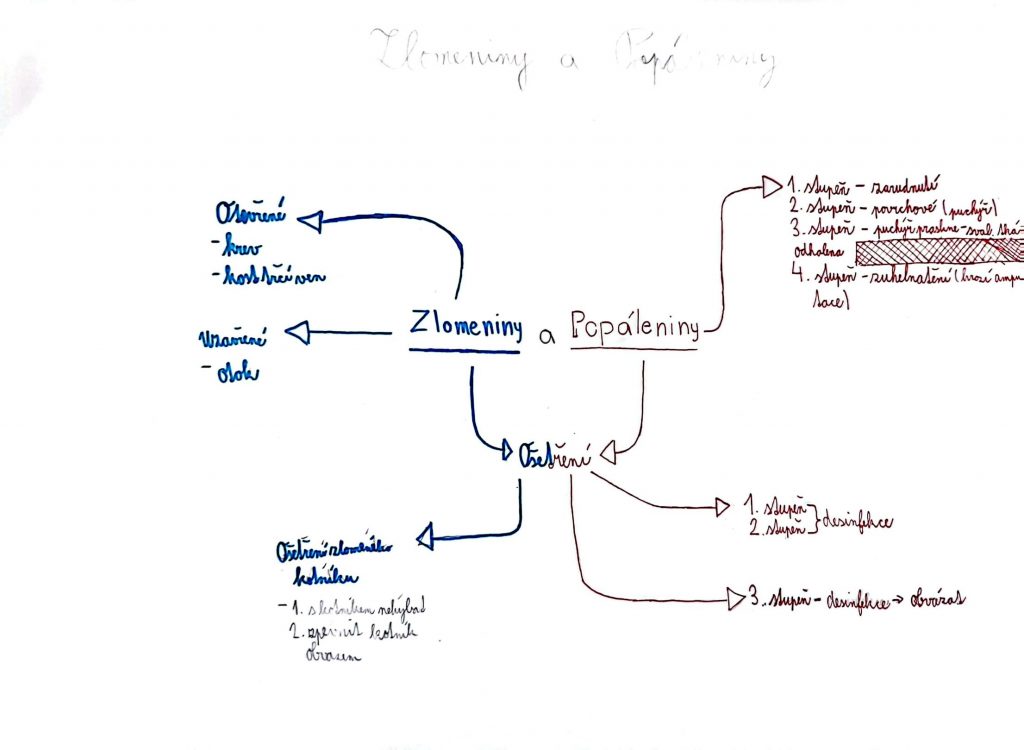 Zlomeniny a
Otevřené
- krev
- kost trčí ven
Uzavřené
- otok
Zlomeniny a Popáleniny
1. stupeň - zarudnutí
2. stupeň - povrchové (puchýř)
3. stupeň - puchýř praskne - sval. tká-
odhalena
4. stupeň - zuhelnatění (hrozí ampu
tace)
Ošetření
Ošetření zlomeného
kotníku
- 1. s kotníkem nehýbat
2. zpevnit kotník
obvazem
1. stupeň
2. stupeň } desinfekce
3. stupeň - desinfekce → obvázat